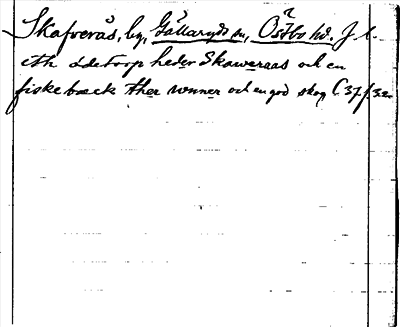 Skafverås, by, Gällaryds sn, Östbo hd. J. l.
eth ödetorp heder Skaweraas och en
fiskebæck ther renner och en god skog C 37 f. 32